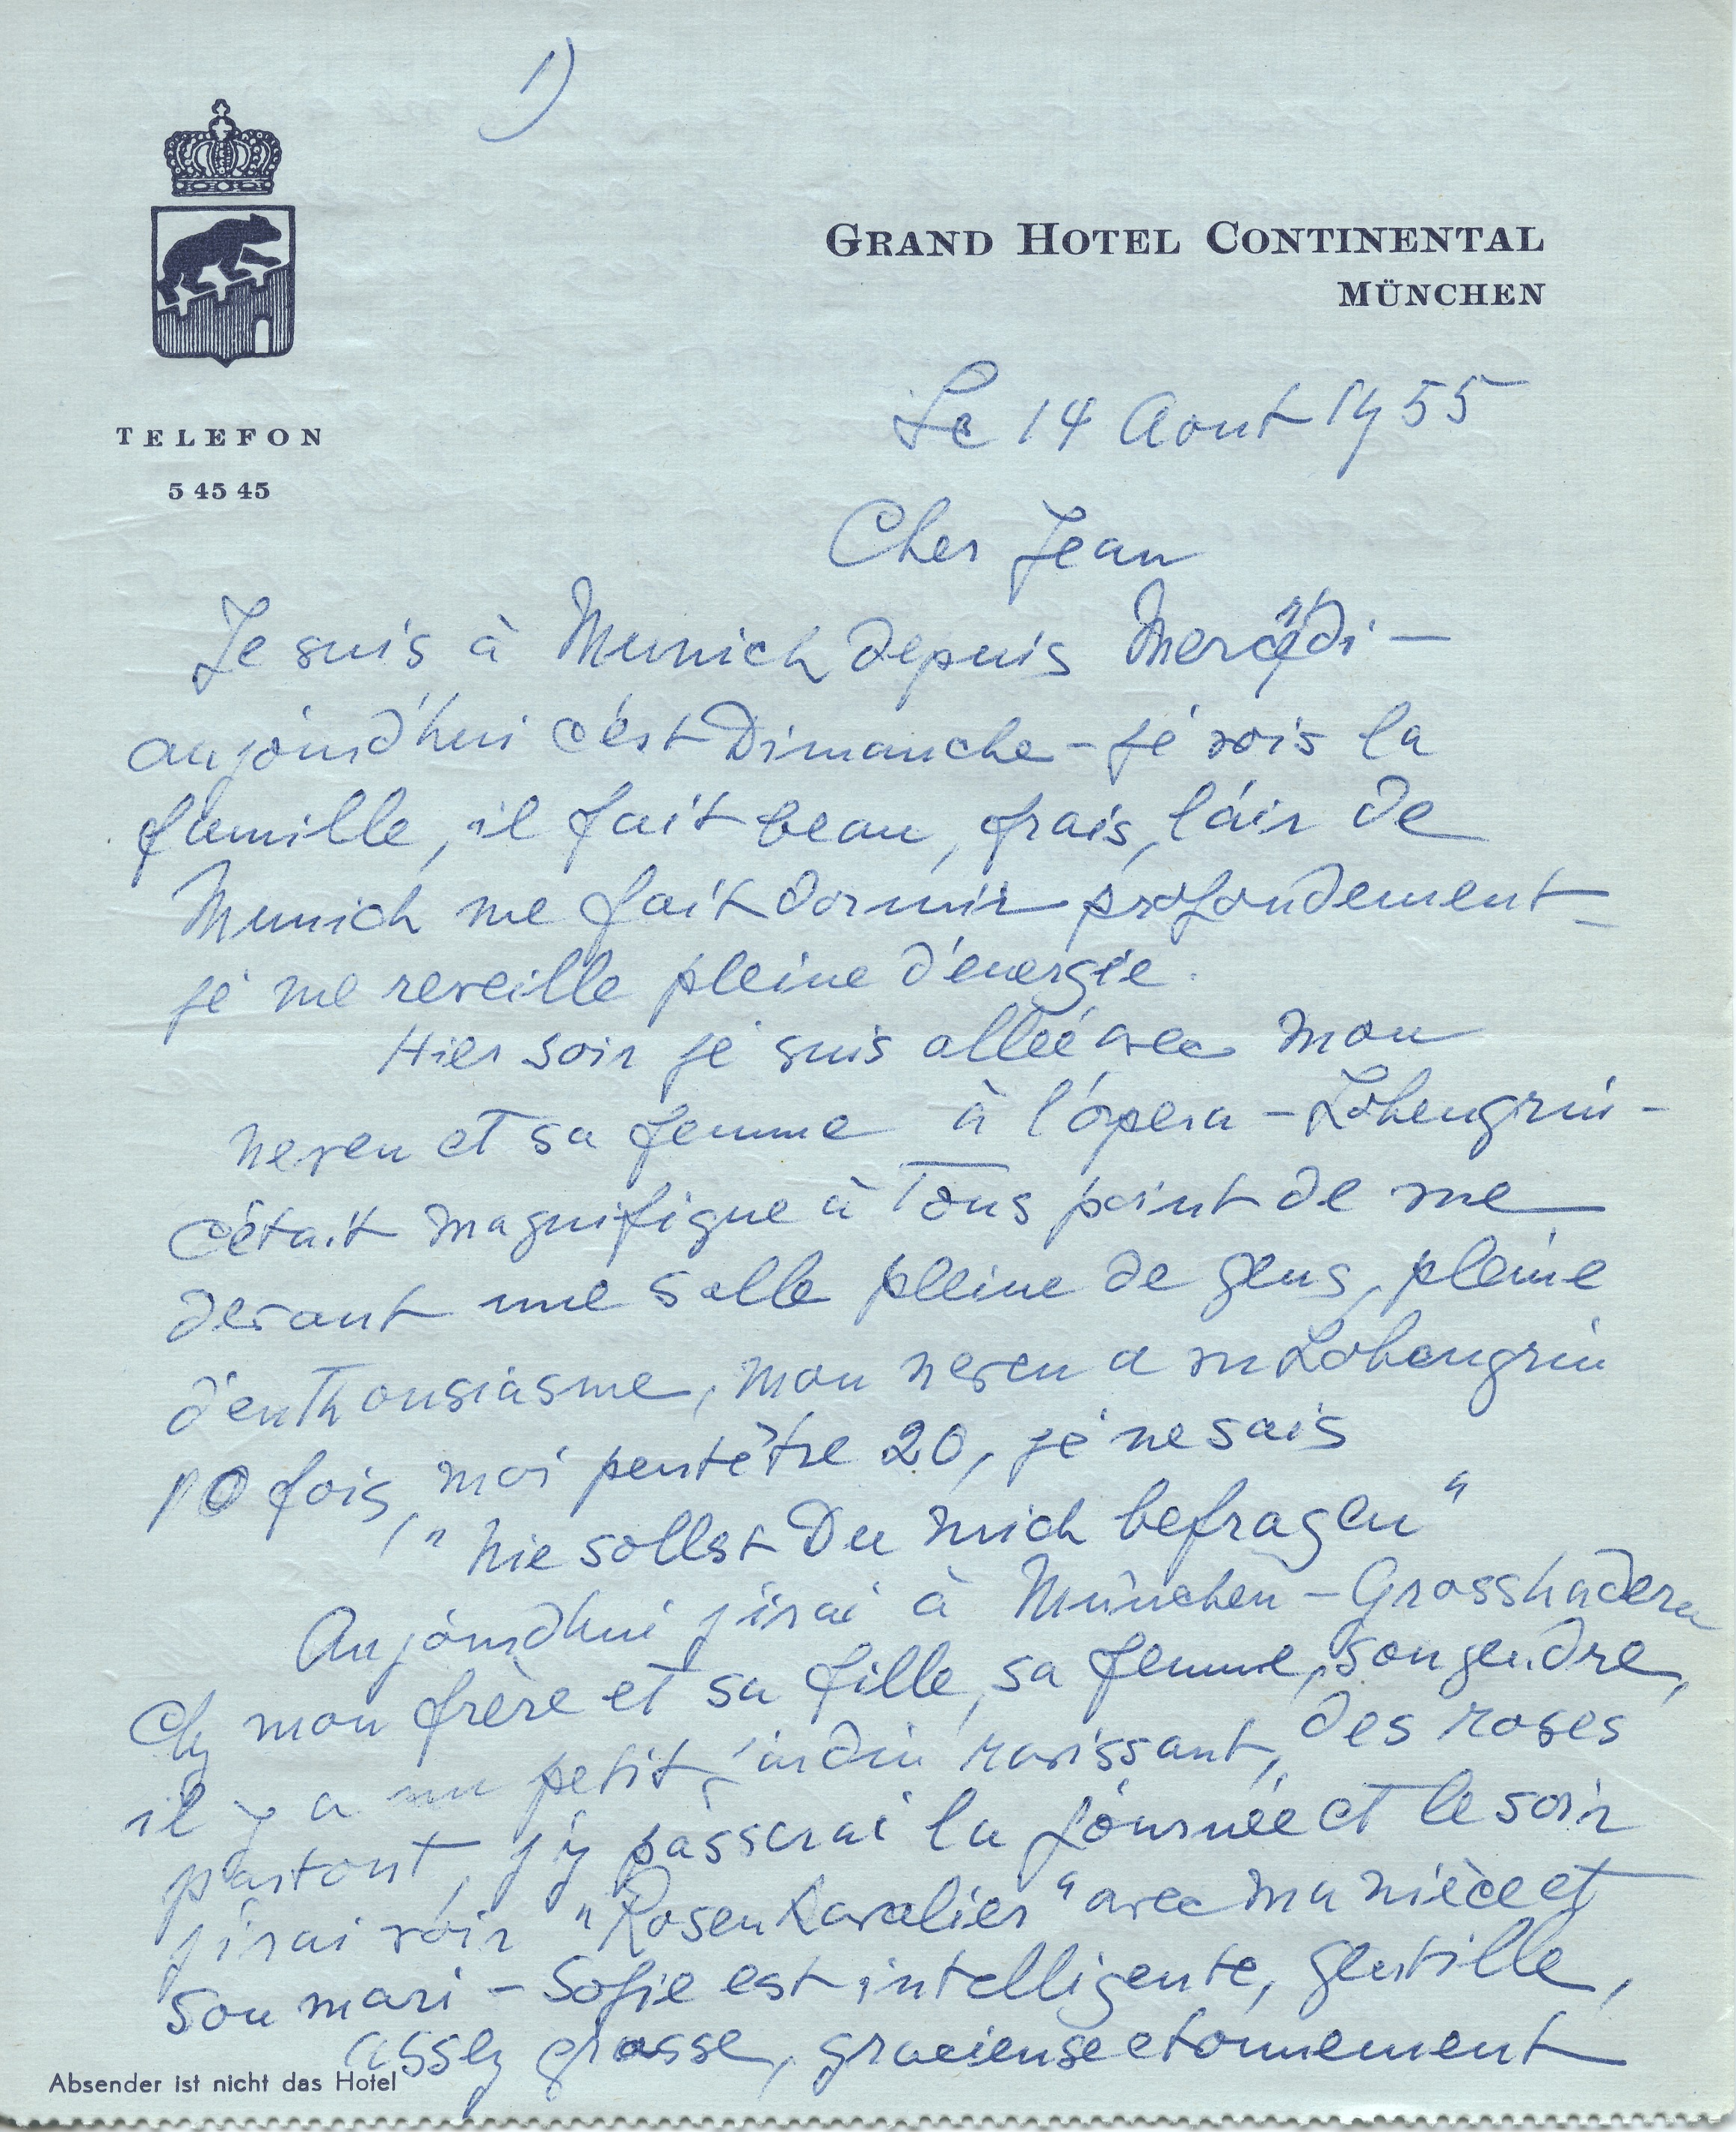 1)
GRAND HOTEL CONTINENTAL
MÜNCHEN
TELEFON
5 45 45
Le 14 Aout 1955
Cher Jean
Je suis à Munich depuis Mercredi —
aujourd'hui c'est Dimanche - je vois la
famille, il fait beau, frais, l'air de
Munich me fait dormir profondement -
je me reveille pleine d'énergie.
Hier soir je suis allée avec mon
neveu et sa femme à l'opera - Lohengrin -
c'était magnifique à Tous point de vue
devant une salle pleine de gens, pleine
d'enThousiasme, mon neveu a vu Lohengrin
10 fois, moi peutêtre 20, je ne sais
, "nie sollst Du mich befragen"
Aujourdhui j'irai à München - Grosshadern
chez mon frère et sa fille, sa femme, son gendre,
il y a un petit jardin ravissant, des roses
partout, j'y passerai la journée et le soir
j'irai voir "Rosenkavalier" avec ma nièce et
son mari - Sofie est intelligente, gentille,
assez grosse, gracieuse etonnement
Absender ist nicht das Hotel